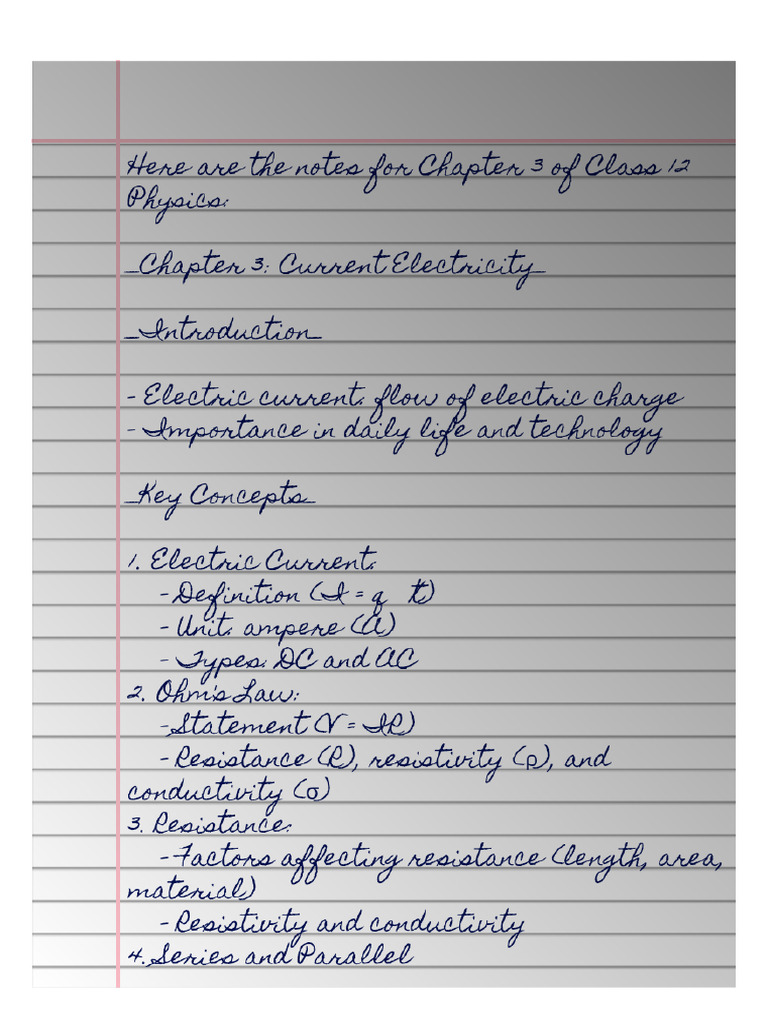 Here are the notes for Chapter 3 of Class 12
Physics:
_Chapter 3: Current Electricity_
_Introduction_
- Electric current: flow of electric charge
- Importance in daily life and technology
_Key Concepts_
1. Electric Current:
- Definition (I = q t)
- Unit: ampere (A)
- Types: DC and AC
2. Ohm's Law:
- Statement (V = IR)
- Resistance (R), resistivity (ρ), and
conductivity (σ)
3. Resistance:
- Factors affecting resistance (length, area,
material)
- Resistivity and conductivity
4. Series and Parallel